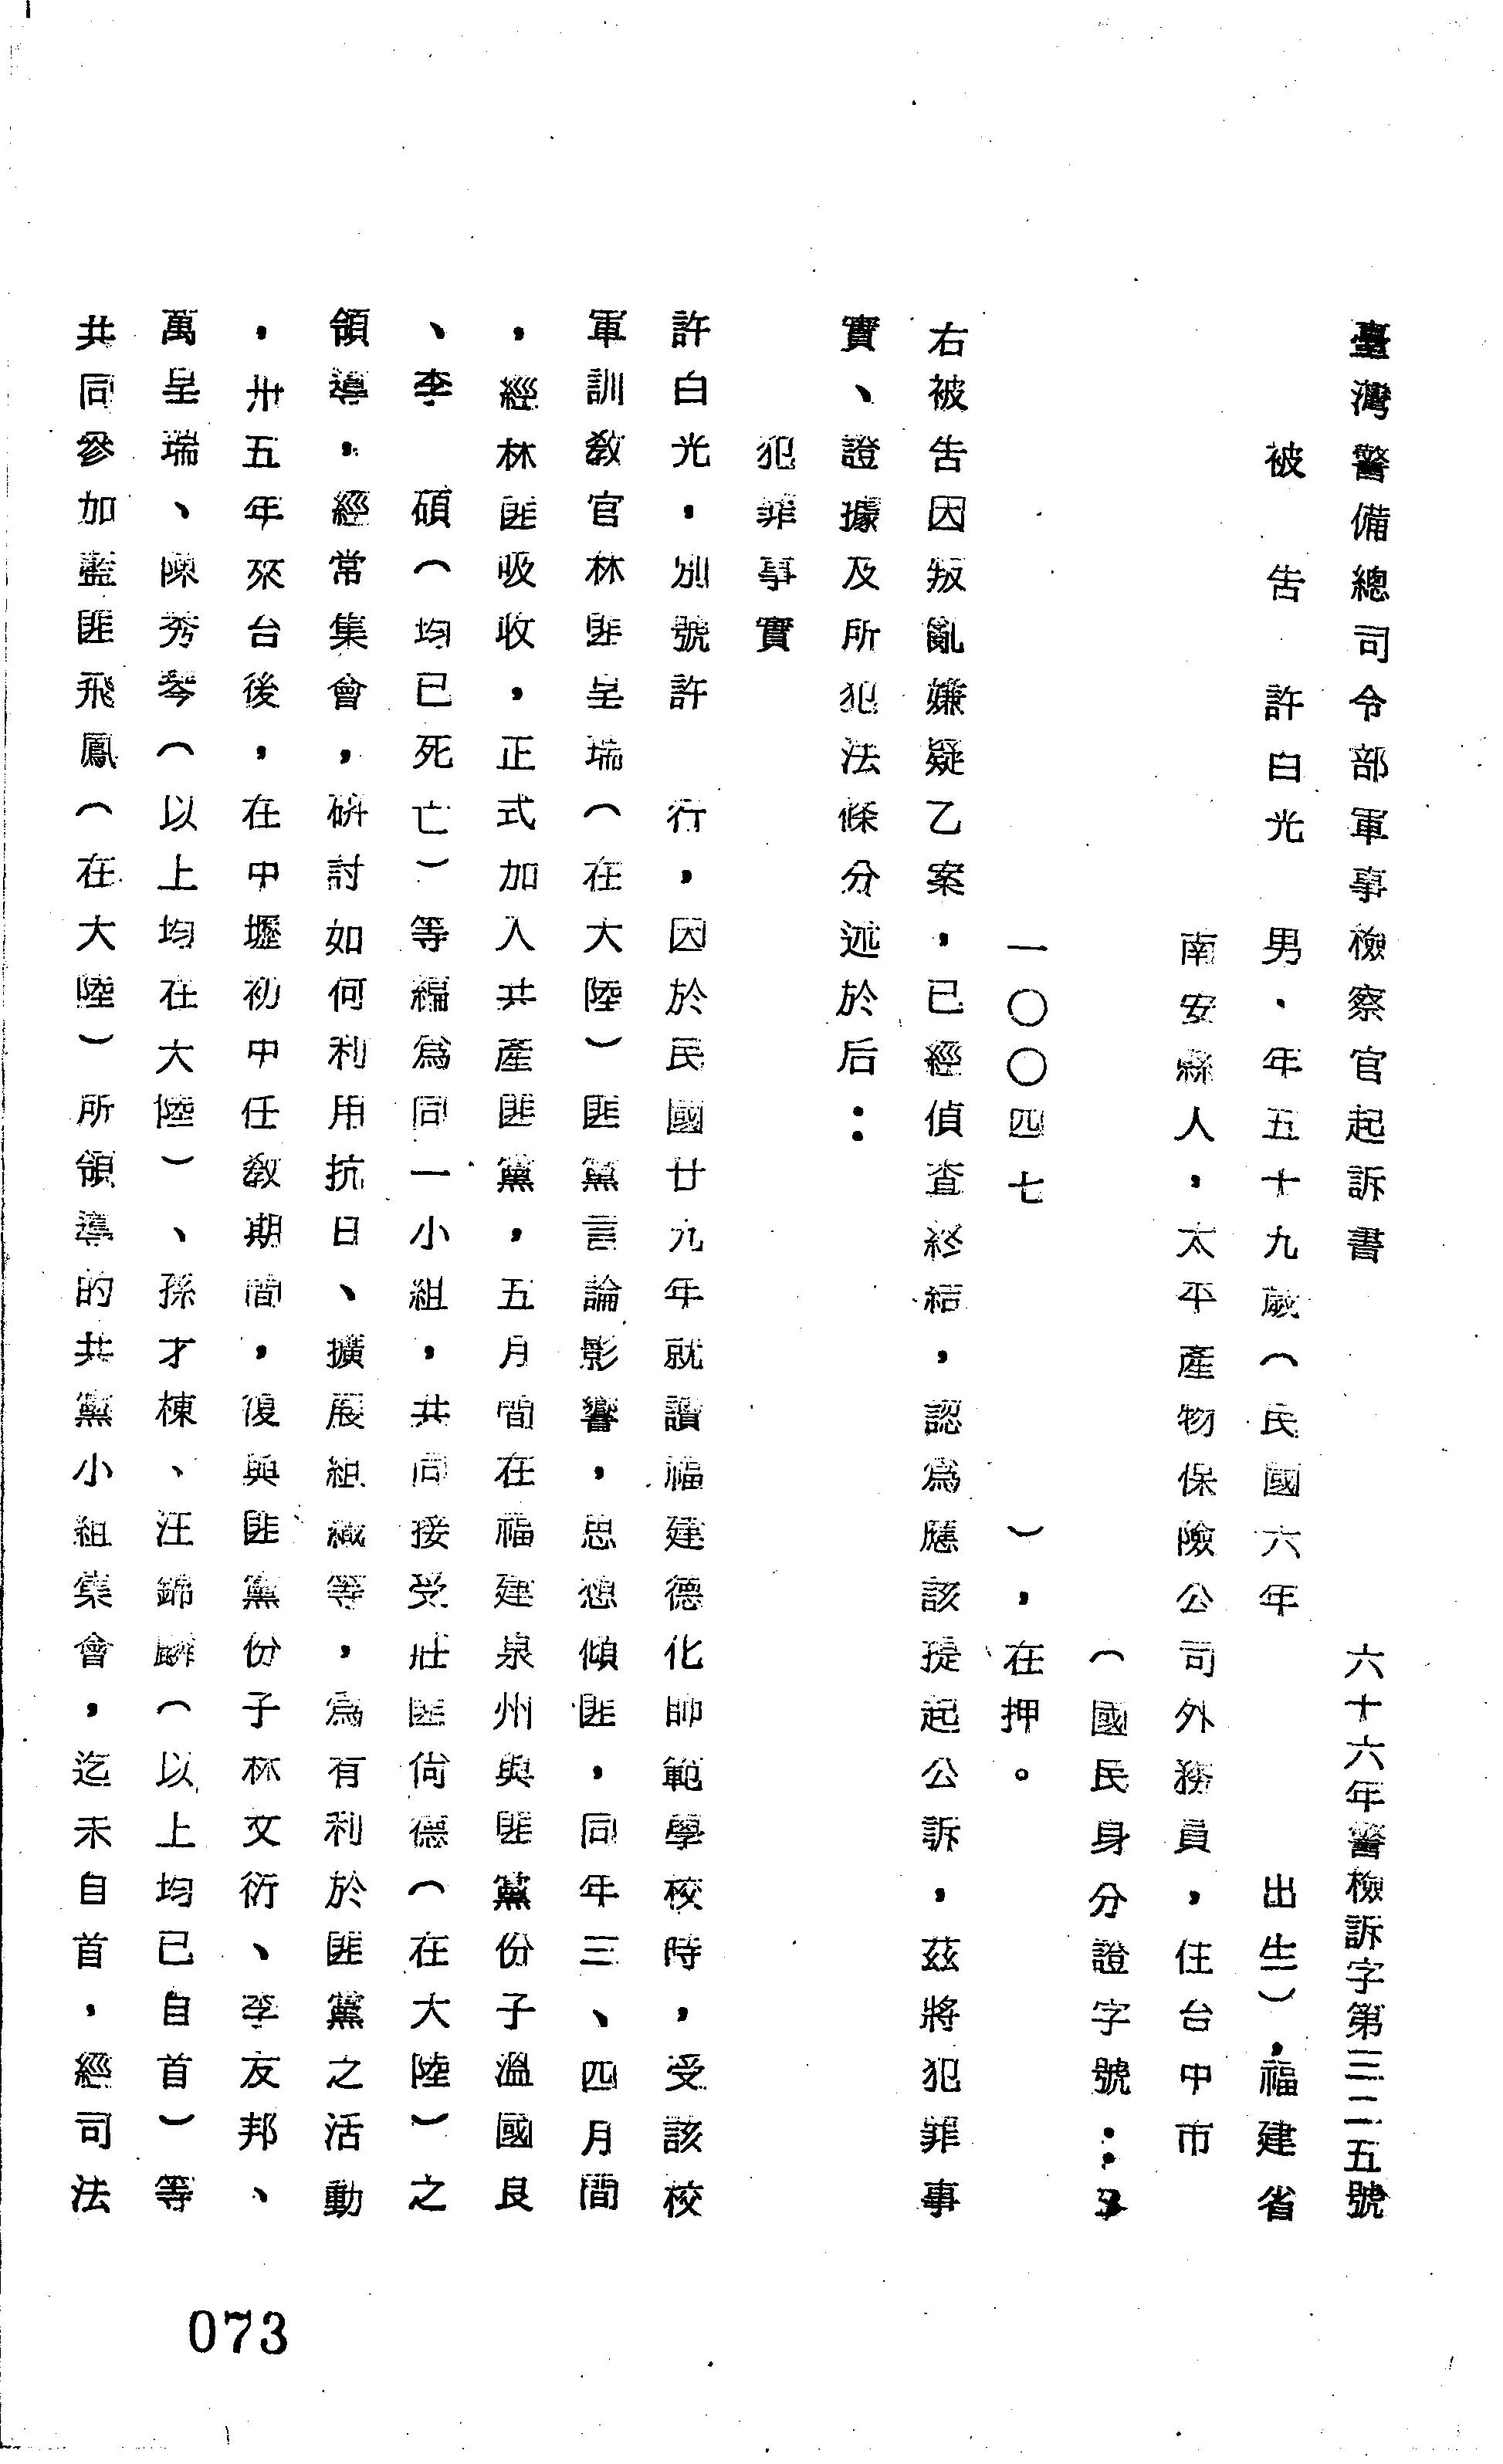 臺灣警備總司令部軍事檢察官起訴書　六十六年警檢訴字第三二五號
被告　許白光　男、年五十九歲（民國六年　出生），福建省
南安縣人，太平產物保險公司外務員，住台中市
（國民身分證字號：
一〇〇四七　），在押。
右被告因叛亂嫌疑乙案，已經偵查終結，認為應該提起公訴，茲將犯罪事
實、證據及所犯法條分述於后：
犯罪事實
許白光，別號許　行，因於民國廿九年就讀福建德化師範學校時，受該校
軍訓教官林匪呈瑞（在大陸）匪黨言論影響，思想傾匪，同年三、四月間
，經林匪吸收，正式加入共產匪黨，五月間在福建泉州與匪黨份子溫國良
、李　碩（均已死亡）等編為同一小組，共同接受莊匪尙德（在大陸）之
領導。經常集會，研討如何利用抗日、擴展組織等，為有利於匪黨之活動
，卅五年來台後，在中壢初中任教期間，復與匪黨份子林文衍、李友邦、
萬呈瑞、陳秀琴（以上均在大陸）、孫才棟、汪錦麟（以上均已自首）等
共同參加藍匪飛鳳（在大陸）所領導的共黨小組集會，迄未自首，經司法
073